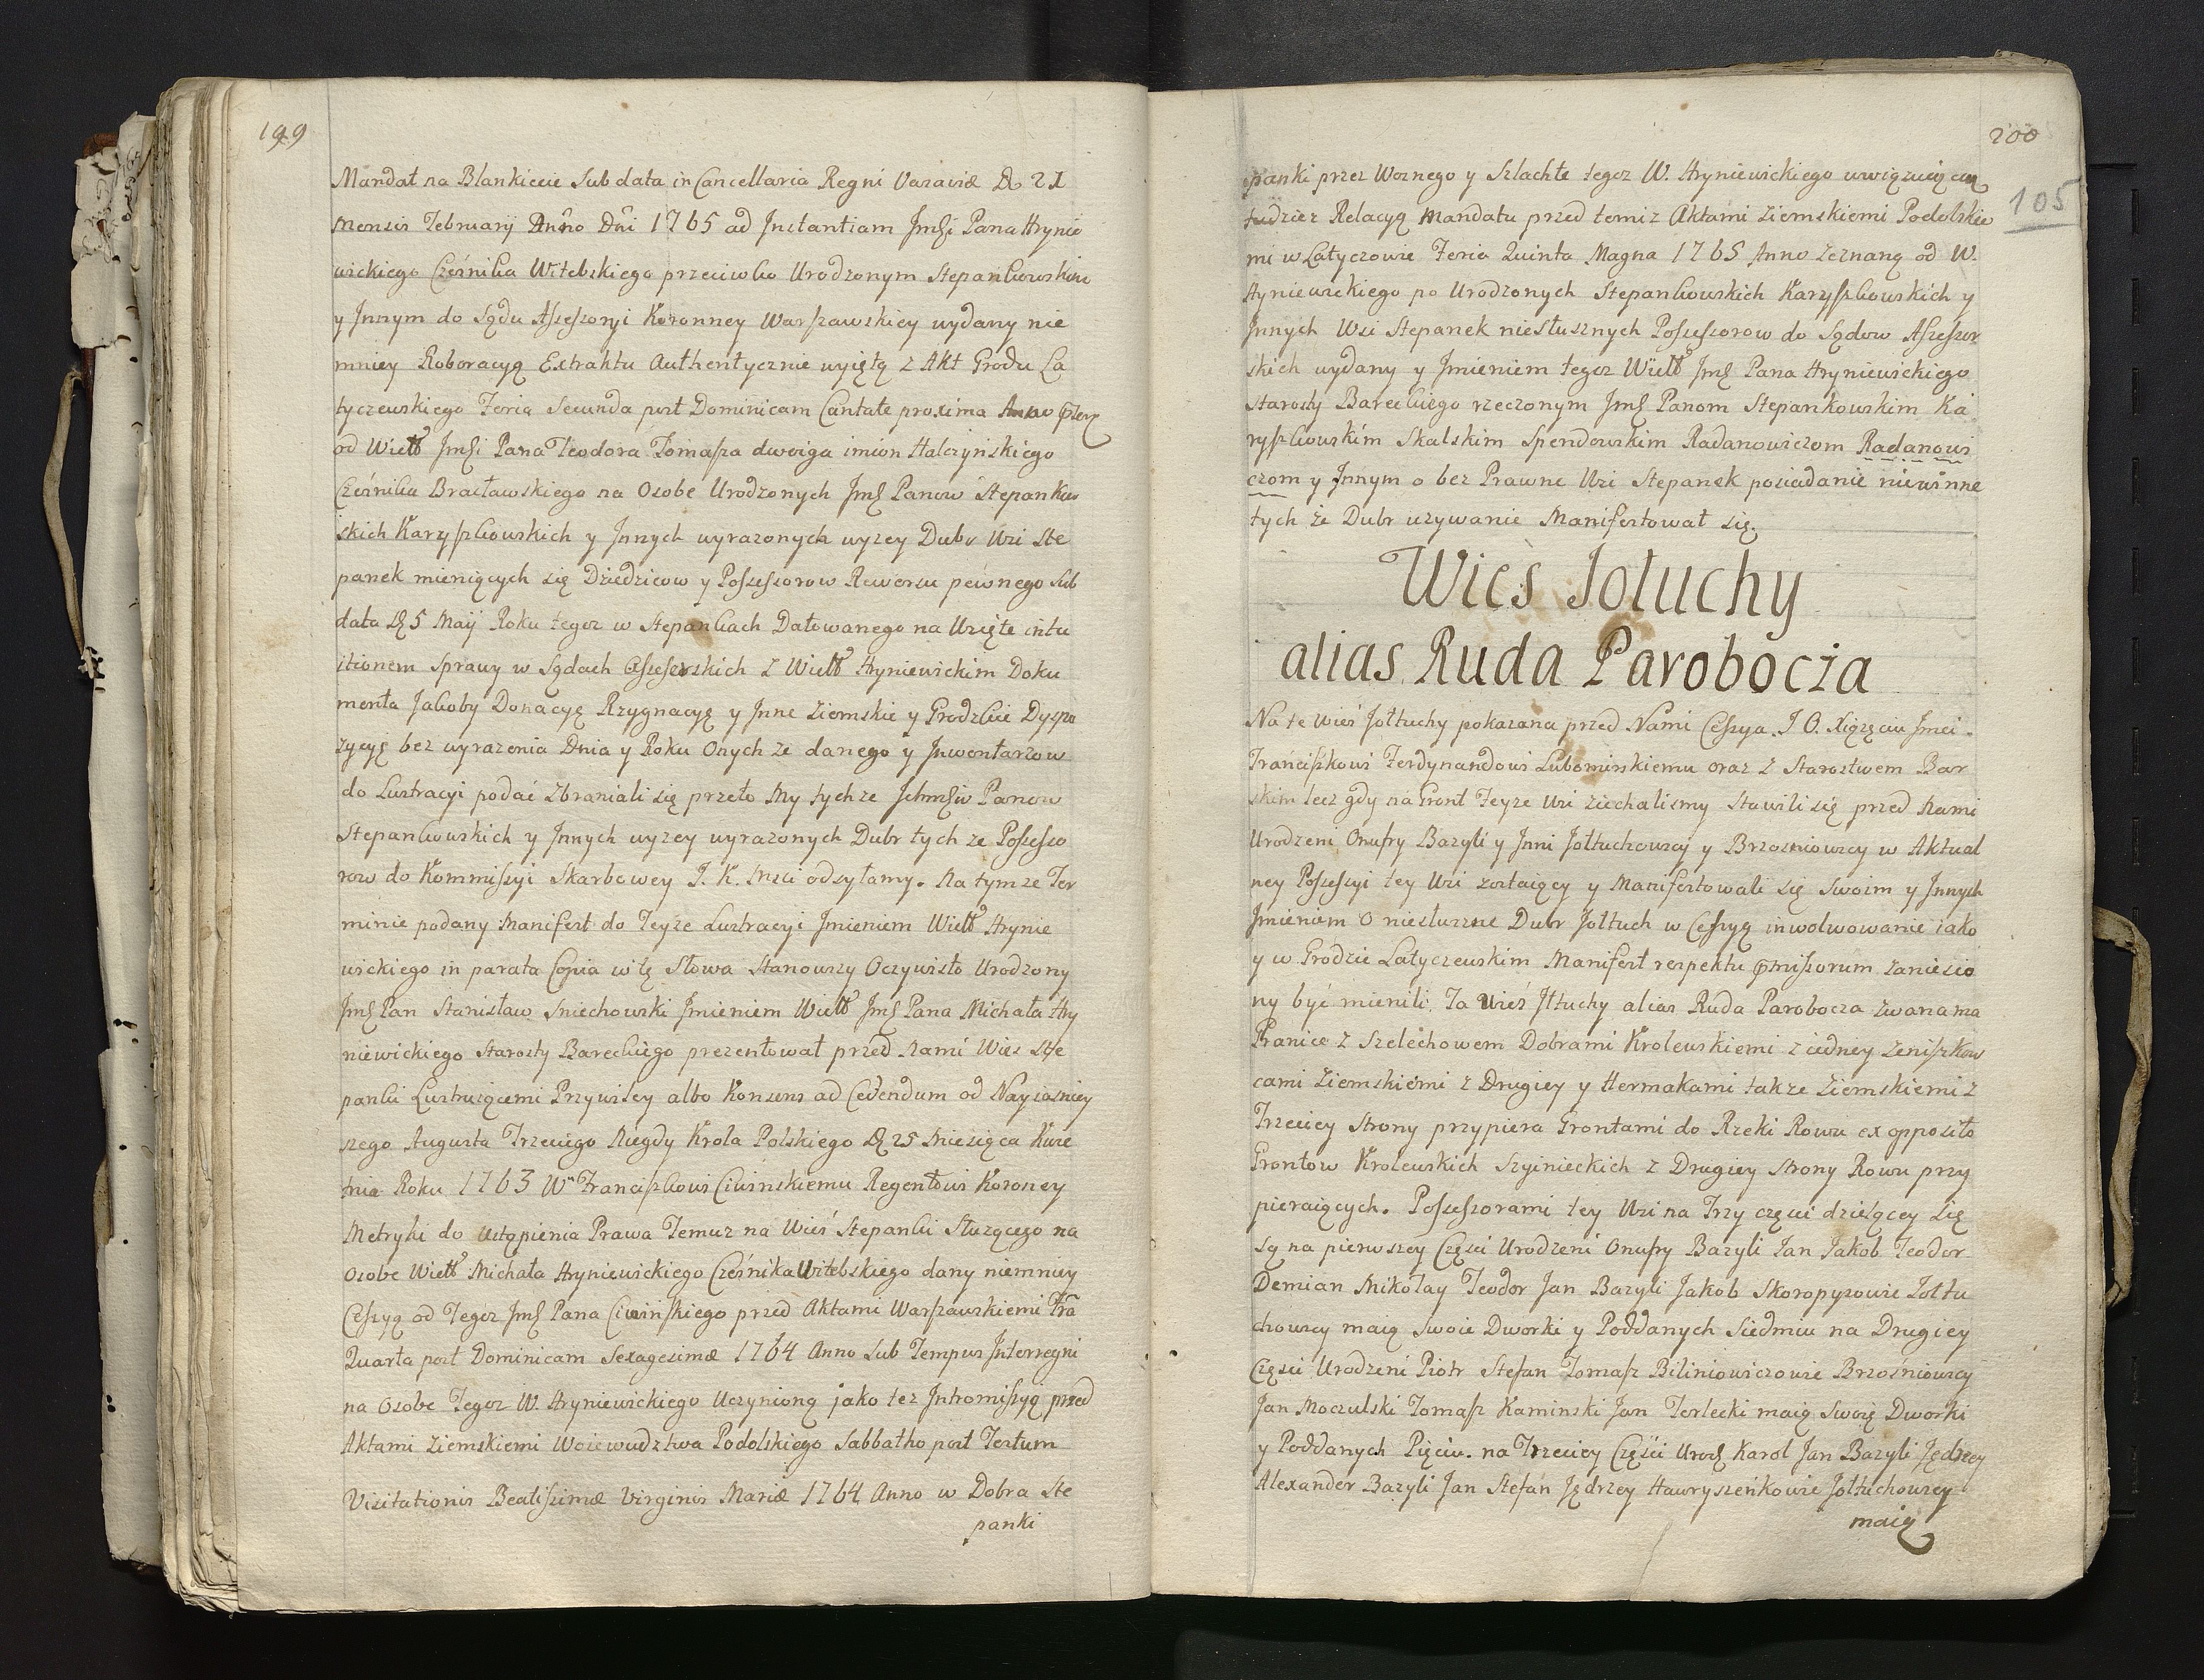 199
Mandat na Blankiecie Sub data in Cancellaria Regni Varaviæ D. 21
Mensis Februarij Anno Dni 1765 ad Instantiam Jmsi Pana Hrynie
wickiego Czesnika Witebskiego przeciwko Urodzonym Stepankowskim
y Innym do Sądu Assessoryi Koronney Warszawskiey wydany nie
mniey Roboracyą Extraktu Authentycznie wyiętą z Akt Grodu La
tyczewskiego Feria Secunda post Dominicam Cantate proxima Anno
od Wielb Jmsi Pana Teodora Tomasza dwoiga imion Halczyńskiego
Cześnika Bracławskiego na Osobe Urodzonych Jms Panow Stepankow
skich Karyszkowskich y Innych wyrazonych wyzey Dubr Wsi Ste
panek mieniących się Dziedzicow y Possessorow Rewersu pewnego Sub
data D. 5 Maij Roku tegoz w Stepankach Datowanego na Wzięte intu
itionem Sprawy w Sądach Assesorskich z Wielb Hryniewickim Doku
menta Jakoby Donacyę Rzygnacyę y Inne Ziemskie y Grodzkie Dyspo
zycyę bez wyrazenia Dnia y Roku Onych ze danego y Inwentarzow
do Lustracyi podać Zbraniali się przeto My tychze Panow
Stepankowskich y Innych wyzey wyrazonych Dubr tych ze Possesso
row do Kommissyi Skarbowey J. K. Msci odsyłamy. Na tymze Ter
minie podany Manifest do Teyze Lustracyi Imieniem Wielb Hrynie
wickiego in parata Copia w tę Słowa Stanowszy Oczywisto Urodzony
Jms Pan Stanisław Sniechowski Imieniem Wielb Jms Pana Michała Hry
niewickiego Starosty Bareckiego prezentował przed Nami Wies Ste
panki Lustruiącemi Przywiley albo Konsens ad Cedendum od Nayiasniey
szego Augusta Trzeciego Niegdy Krola Polskiego D. 25 Miesiąca Kwie
tnia Roku 1763 Wu Franciszkowi Ciwinskiemu Regentowi Koroney
Metryki do ustąpienia Prawa Temuz na Wieś Stepanki Służącego na
Osobe Wielb Michała Hryniewickiego Cześnika Witebskiego dany niemniey
Cessyą od Tegoz Jms Pana Ciwinskiego przed Aktami Warszawskiemi Fra
Quarta post Dominicam Sexagesimæ 1764 Anno Sub Tempus Interregni
na Osobe Tegoz W. Hryniewickiego Uczynioną jako tez Intromissyą przed
Aktami Ziemskiemi Woiewudztwa Podolskiego Sabbatho post Festum
Visitationis Beatissimæ Virginis Mariæ 1764 Anno w Dobra Ste
panki
200
105
panki przez Woznego y Szlachte tegoz W. Hryniewickiego uwięzuięcą
tudziez Relacyą Mandatu przed temiz Aktami Ziemskiemi Podolskie
mi w Latyczowie Feria Quinta Magna 1765 Anno Zeznaną od W.
Hyniewickiego po Urodzonych Stepankowskich Karyszkowskich y
Innych Wsi Stepanek niesłusznych Possessorow do Sądow Assessor
skich wydany y Imieniem tegoz Wielb Jms Pana Hryniewickiego
Starosty Bareckiego rzeczonym Jms Panom Stepankowskim Ka
ryszkowskim Skalskim Spendowskim Radanowiczom Radanowi
czom y Innym o bez Prawne Wsi Stepanek posiadanie niewinne
tych że Dubr uzywanie Manifestował się.
Wieś Jołuchy
alias Ruda Parobocza
Na te wieś Jołtuchy pokazana przed Nami Cessya J O. Xiązęciu Jmci
Franciszkowi Ferdynandowi Lubomirskiemu oraz z Starostwem Bar
skim lecz gdy na Gront Teyze Wsi ziechalismy Stawili się przed Nami
Urodzeni Onufry Bazyli y Inni Jołtuchowscy y Brzozniowscy w Aktual
ney Possessyi tey Wsi zostaiący y Manifestowali się Swoim y Innych
Imieniem o niesłuszne Dubr Jołtuch w Cessyą inwolwowanie iako
y w Grodzie Latyczewskim Manifest respektu pmissorum Zaniesio
ny być mienili. Ta Wieś Jłtuchy alias Ruda Parobocza zwana ma
Granice z Szelechowem Dobrami Krolewskiemi z iedney Zeniszkow
cami Ziemskiemi z Drugiey y Hermakami takze Ziemskiemi z
Trzeciey Strony przypiera Grontami do Rzeki Rowu ex opposito
Grontow Krolewskich Szyinieckich z Drugiey Strony Rowu przy
pieraiących. Possessorami tey Wsi na Trzy częsci dzielącey się
są na pierwszey Częsci Urodzeni Onufry Bazyli Jan Jakob Teodor
Demian Mikołay Teodor Jan Bazyli Jakob Skoropysowie Jołtu
chowscy maią Swoie Dworki y Poddanych Siedmiu na Drugiey
Częsci Urodzeni Piotr Stefan Tomasz Biliniowiczowie Brzośniowscy
Jan Moczulski Tomasz Kaminski Jan Terlecki maią Swoię Dworki
y Poddanych Pięciu. na Trzeciey Częsci Urodz Karol Jan Bazyli Jędrzey
Alexander Bazyli Jan Stefan Jędrzey Hawryszeńkowie Jołtuchowscy
maią